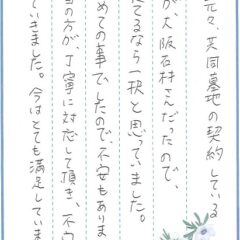 元々、共同墓地の契約している
が、大阪石材さんだったので、
てるなら一択と思っていました。
めての事でしたので不安もありま
の方が、丁寧に対応して頂き、不
いきました。今はとても満足していま